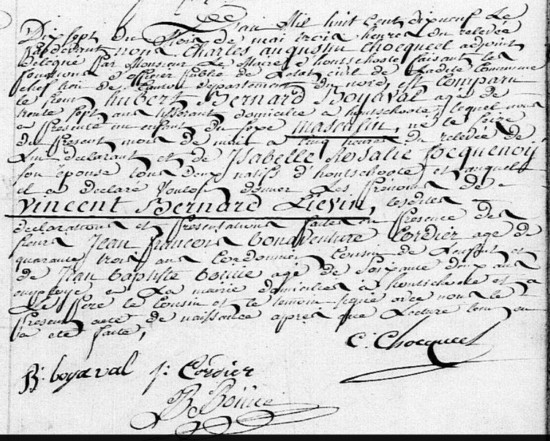 L'an Mil huit cent dixneuf Le
Dix sept du Mois de mai trois heures de relevée
Pardevant nous Charles augustin Chocqueel adjoint
Délégué par Monsieur Le Maire d'hontschoote faisant les
fonctions d'officier public de L'etat civil de Ladite Commune
chef lieu de Canton departement du nord, est Comparu
le sieur hubert Bernard Boyaval agé de
trente sept ans domicilié a hontschoote, lequel nous
a presenté un enfant du sexe masculin, né le seize
du present mois de mai a cinq heures de relevée de
Lui declarant et de Isabelle Rosalie Becquenoy
son epouse tous deux natifs d'hontschoote, et auquel
il a declaré vouloir donner Les prenoms de
Vincent Bernard Lievin, lesdites
declarations et presentations faites en presence des
sieurs Jean francois bonaventure Cordier agé de
quarante trois ans Cordonnier, Cousin de L'enfant
et de Jean baptiste Bollie agé de soixante deux ans
employé a La mairie domiciliés a hontschoote et ont
Le pere le Cousin et le temoin signé avec nous le
present acte de naissance apres que Lecture leur en
a eté faite,
C. Chocqueel
B. boyaval j: Cordier
JB Bollie